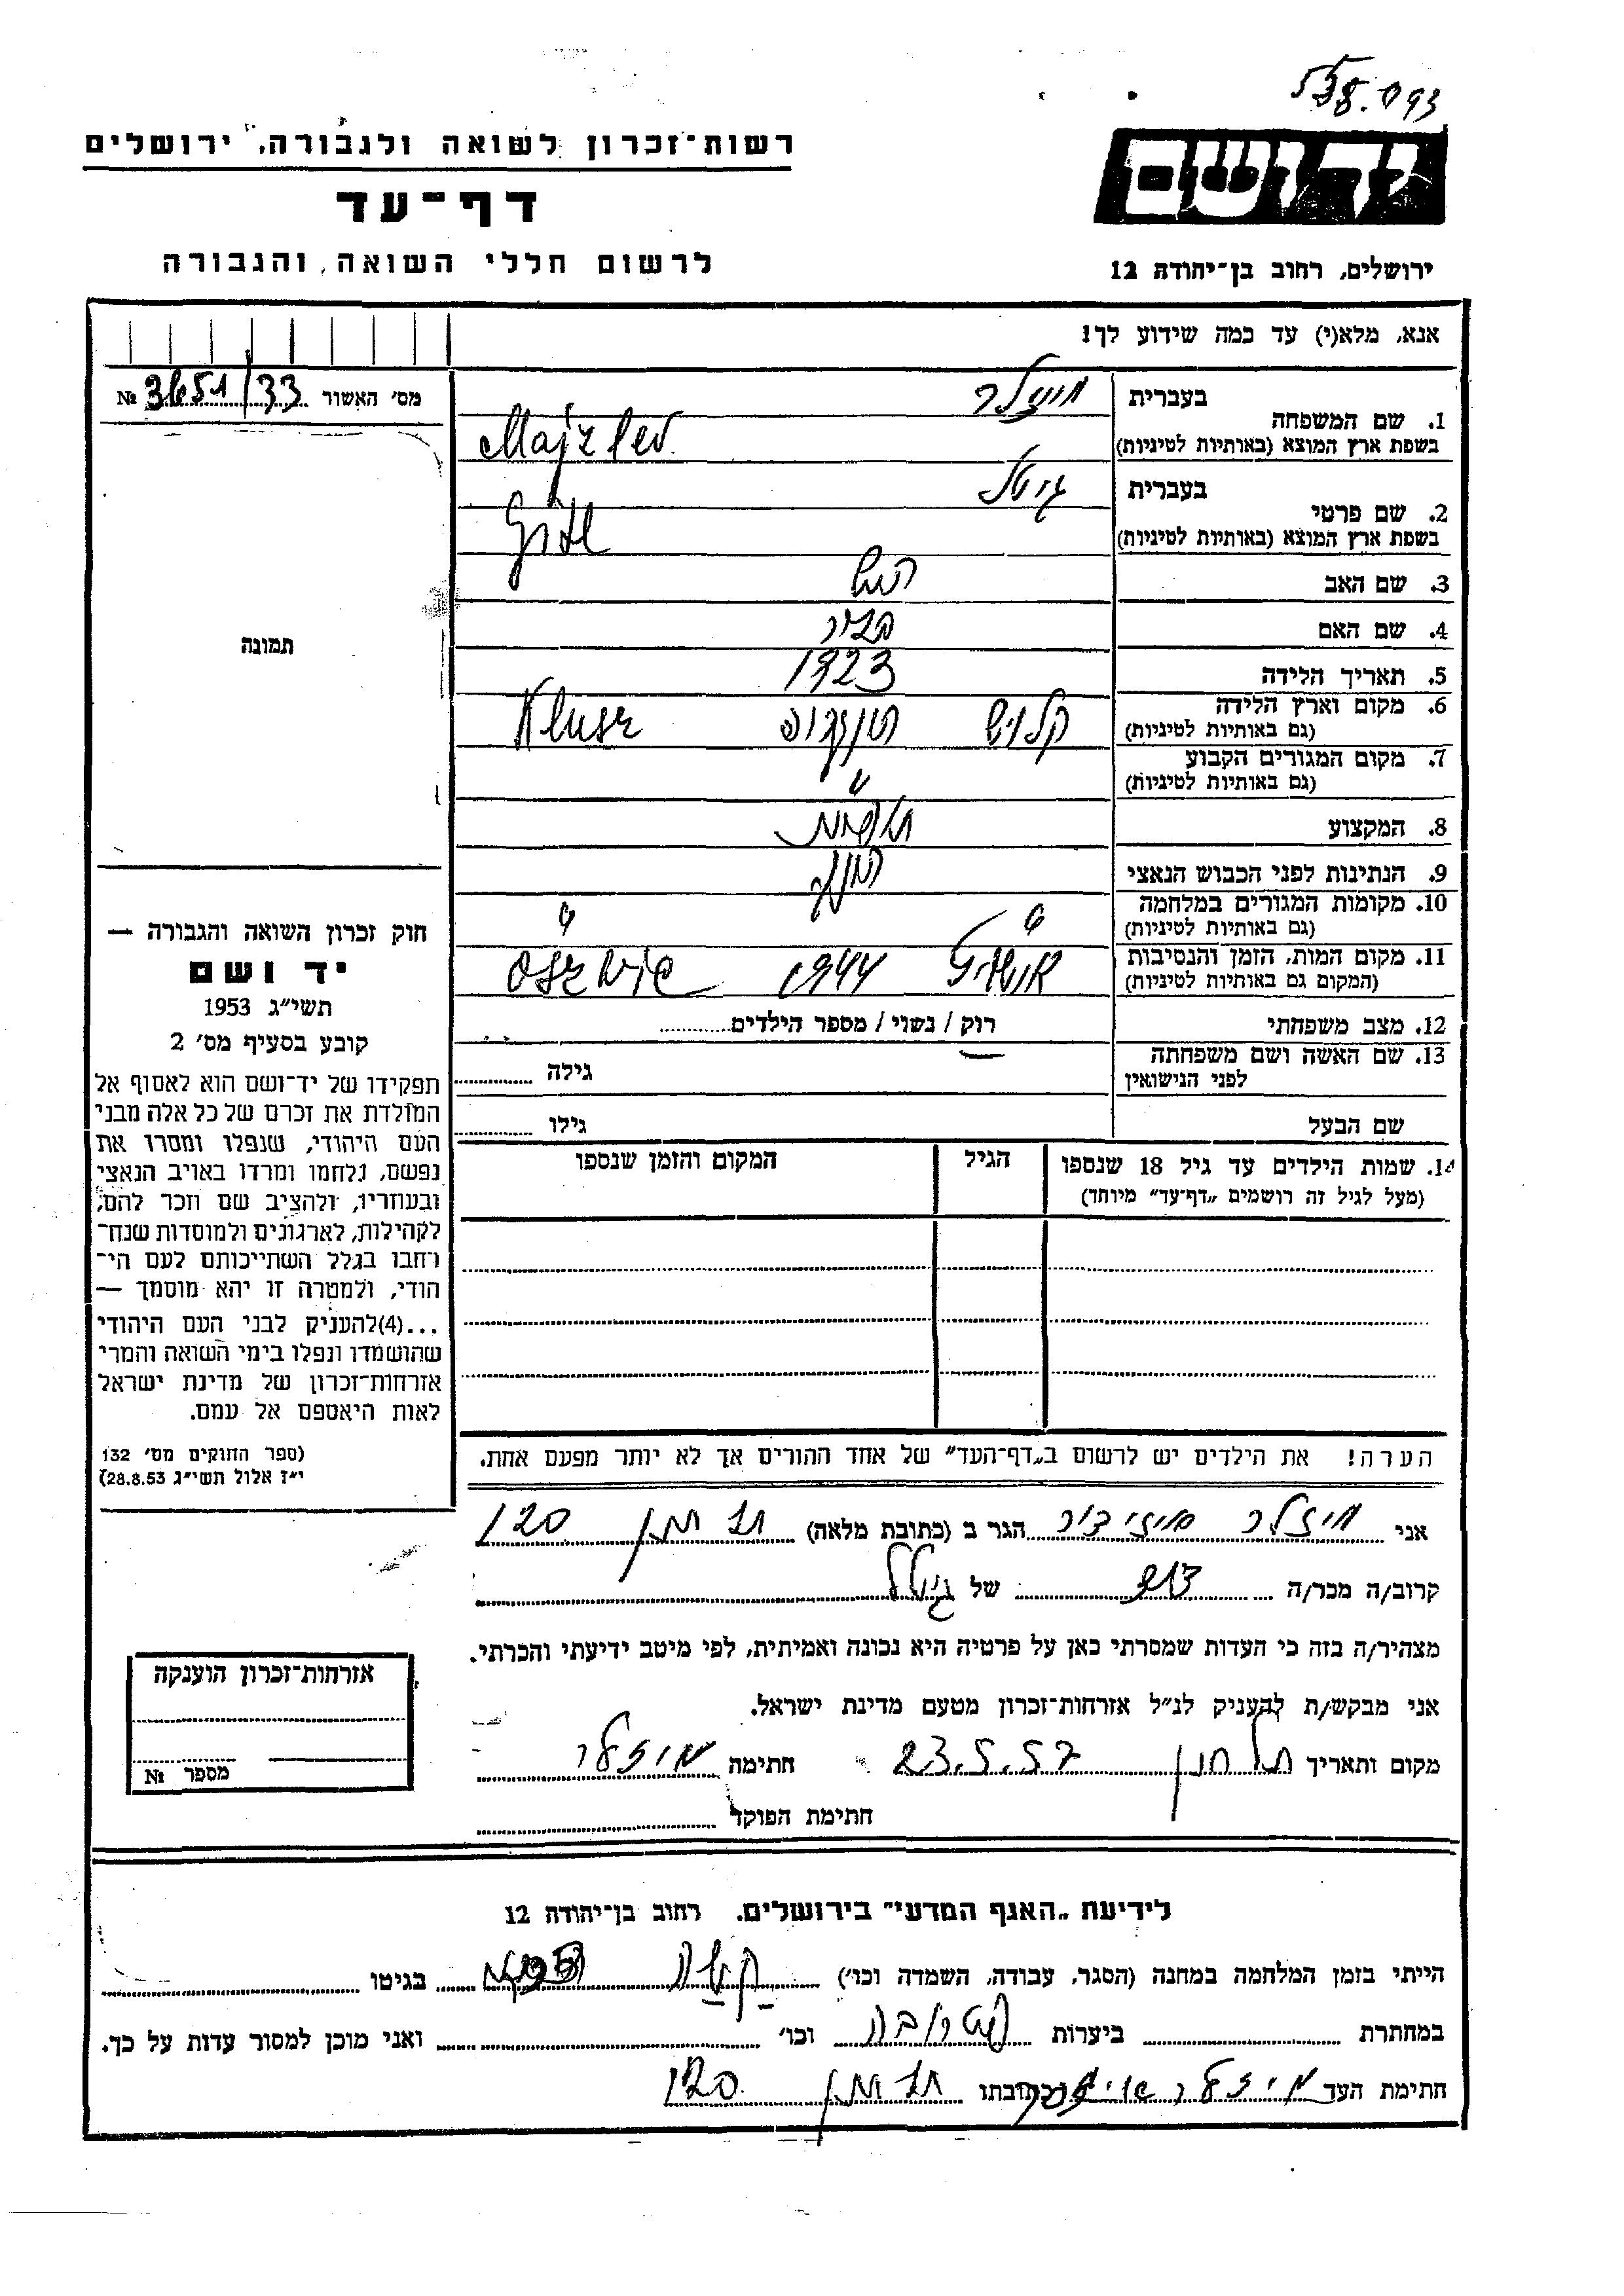 538.093
רשות־זכרון לשואה ולגבורה, ירושלים
דף־עד
לרשום חללי השואה והגבורה
ידושם
ירושלים, רחוב בן־יהודה 12
אנא, מלא(י) עד כמה שידוע לך!
מס׳ האשור № 3651/33
1. שם המשפחה
בעברית
בשפת ארץ המוצא (באותיות לטיניות) Majzler
2. שם פרטי
בעברית גיטל
בשפת ארץ המוצא (באותיות לטיניות) Gitl
3. שם האב
4. שם האם
5. תאריך הלידה 1923
6. מקום וארץ הלידה
(גם באותיות לטיניות) Klusz
7. מקום המגורים הקבוע
(גם באותיות לטיניות) "
8. המקצוע
9. הנתינות לפני הכבוש הנאצי
10. מקומות המגורים במלחמה
(גם באותיות לטיניות)
11. מקום המות, הזמן והנסיבות
(המקום גם באותיות לטיניות) 1944
12. מצב משפחתי רוק / נשוי / מספר הילדים
13. שם האשה ושם משפחתה
לפני הנישואין גילה
שם הבעל גילו
14. שמות הילדים עד גיל 18 שנספו
(מעל לגיל זה רושמים „דף־עד״ מיוחד)
הגיל
המקום והזמן שנספו
הערה! את הילדים יש לרשום ב„דף־העד״ של אחד ההורים אך לא יותר מפעם אחת.
תמונה
חוק זכרון השואה והגבורה —
יד ושם
תשי״ג 1953
קובע בסעיף מס׳ 2
תפקידו של יד־ושם הוא לאסוף אל
המולדת את זכרם של כל אלה מבני
העם היהודי, שנפלו ומסרו את
נפשם, נלחמו ומרדו באויב הנאצי
ובעוזריו, ולהציב שם וזכר להם,
לקהילות, לארגונים ולמוסדות שנח־
רחבו בגלל השתייכותם לעם הי־
הודי, ולמטרה זו יהא מוסמך —
...(4)להעניק לבני העם היהודי
שהושמדו ונפלו בימי השואה והמרי
אזרחות־זכרון של מדינת ישראל
לאות היאספם אל עמם.
(ספר החוקים מס׳ 132
י״ז אלול תשי״ג 28.8.53)
אני מיזלר הגר ב (כתובת מלאה) 120
קרוב/ה מכר/ה של
מצהיר/ה בזה כי העדות שמסרתי כאן על פרטיה היא נכונה ואמיתית, לפי מיטב ידיעתי והכרתי.
אני מבקש/ת להעניק לנ״ל אזרחות־זכרון מטעם מדינת ישראל.
מקום ותאריך תל חנן 23.5.57 חתימה מיזלר
חתימת הפוקד
אזרחות־זכרון הוענקה
מספר №
לידיעת „האגף המדעי״ בירושלים. רחוב בן־יהודה 12
הייתי בזמן המלחמה במחנה (הסגר, עבודה, השמדה וכו׳) בגיטו
במחתרת ביערות וכו׳ ואני מוכן למסור עדות על כך.
חתימת העד מיזלר וכתובתו 120